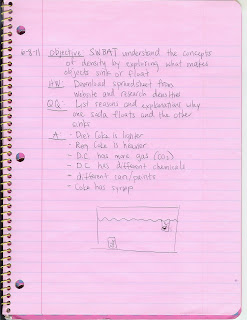 6-8-11 Objective: SWBAT understand the concepts
of density by exploring what makes
objects sink or float
HW: Download spreadsheet from
website and research densities
QQ: List reasons and explanations why
one soda floats and the other
sinks
A: - Diet Coke is lighter
- Reg Coke is heavier
- D.C. has more gas (CO2)
- D.C. has different chemicals
- different can/paints
- Coke has syrup